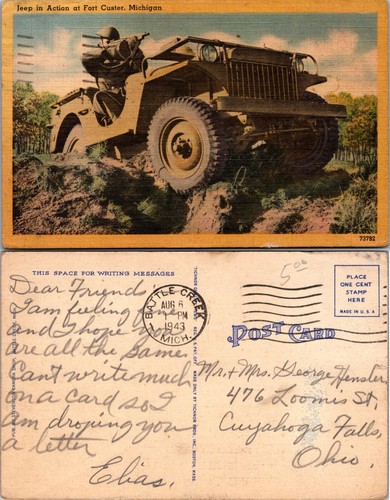 Jeep in Action at Fort Custer, Michigan
73792
THIS SPACE FOR WRITING MESSAGES
Dear Friend
I am feeling
and I hope
are all the same
Can't write much
on a card so I
am droping you
a letter
Elias.
BATTLE CREEK
AUG 6
PM
1943
MICH.
500
PLACE
ONE CENT
STAMP
HERE
MADE IN U.S.A.
POST CARD
Mr. + Mrs. George Henster
476 Loomis St,
Cuyahoga Falls,
Ohio.